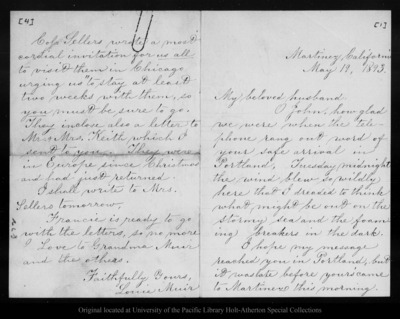 [1]
Martinez, California
May 19, 1893.
My beloved husband
O John, how glad
we were when the tele-
phone rang out word of
your safe arrival in
Portland. Tuesday midnight
the wind blew so wildly
here that I dreaded to think
what might be out on the
stormy sea and the foam-
ing breakers in the dark.
I hope my message
reached you in Portland, but
it was late before yours came
to Martinez this morning.
[4]
Col. Sellers wrote a most
cordial invitation for us all
to visit them in Chicago
urging us "to stay at least
two weeks with them," so
you must be sure to go.
They inclose also a letter to
Mr. & Mrs. Keith which I
send to you. They were
in Europe since Christmas
and had just returned.
I shall write to Mrs.
Sellers tomorrow.
Francis is ready to go
with the letters, so no more
Love to Grandma Muir
and the others.
Faithfully Yours,
Louie Muir
Original located at University of the Pacific Library Holt-Atherton Special Collections